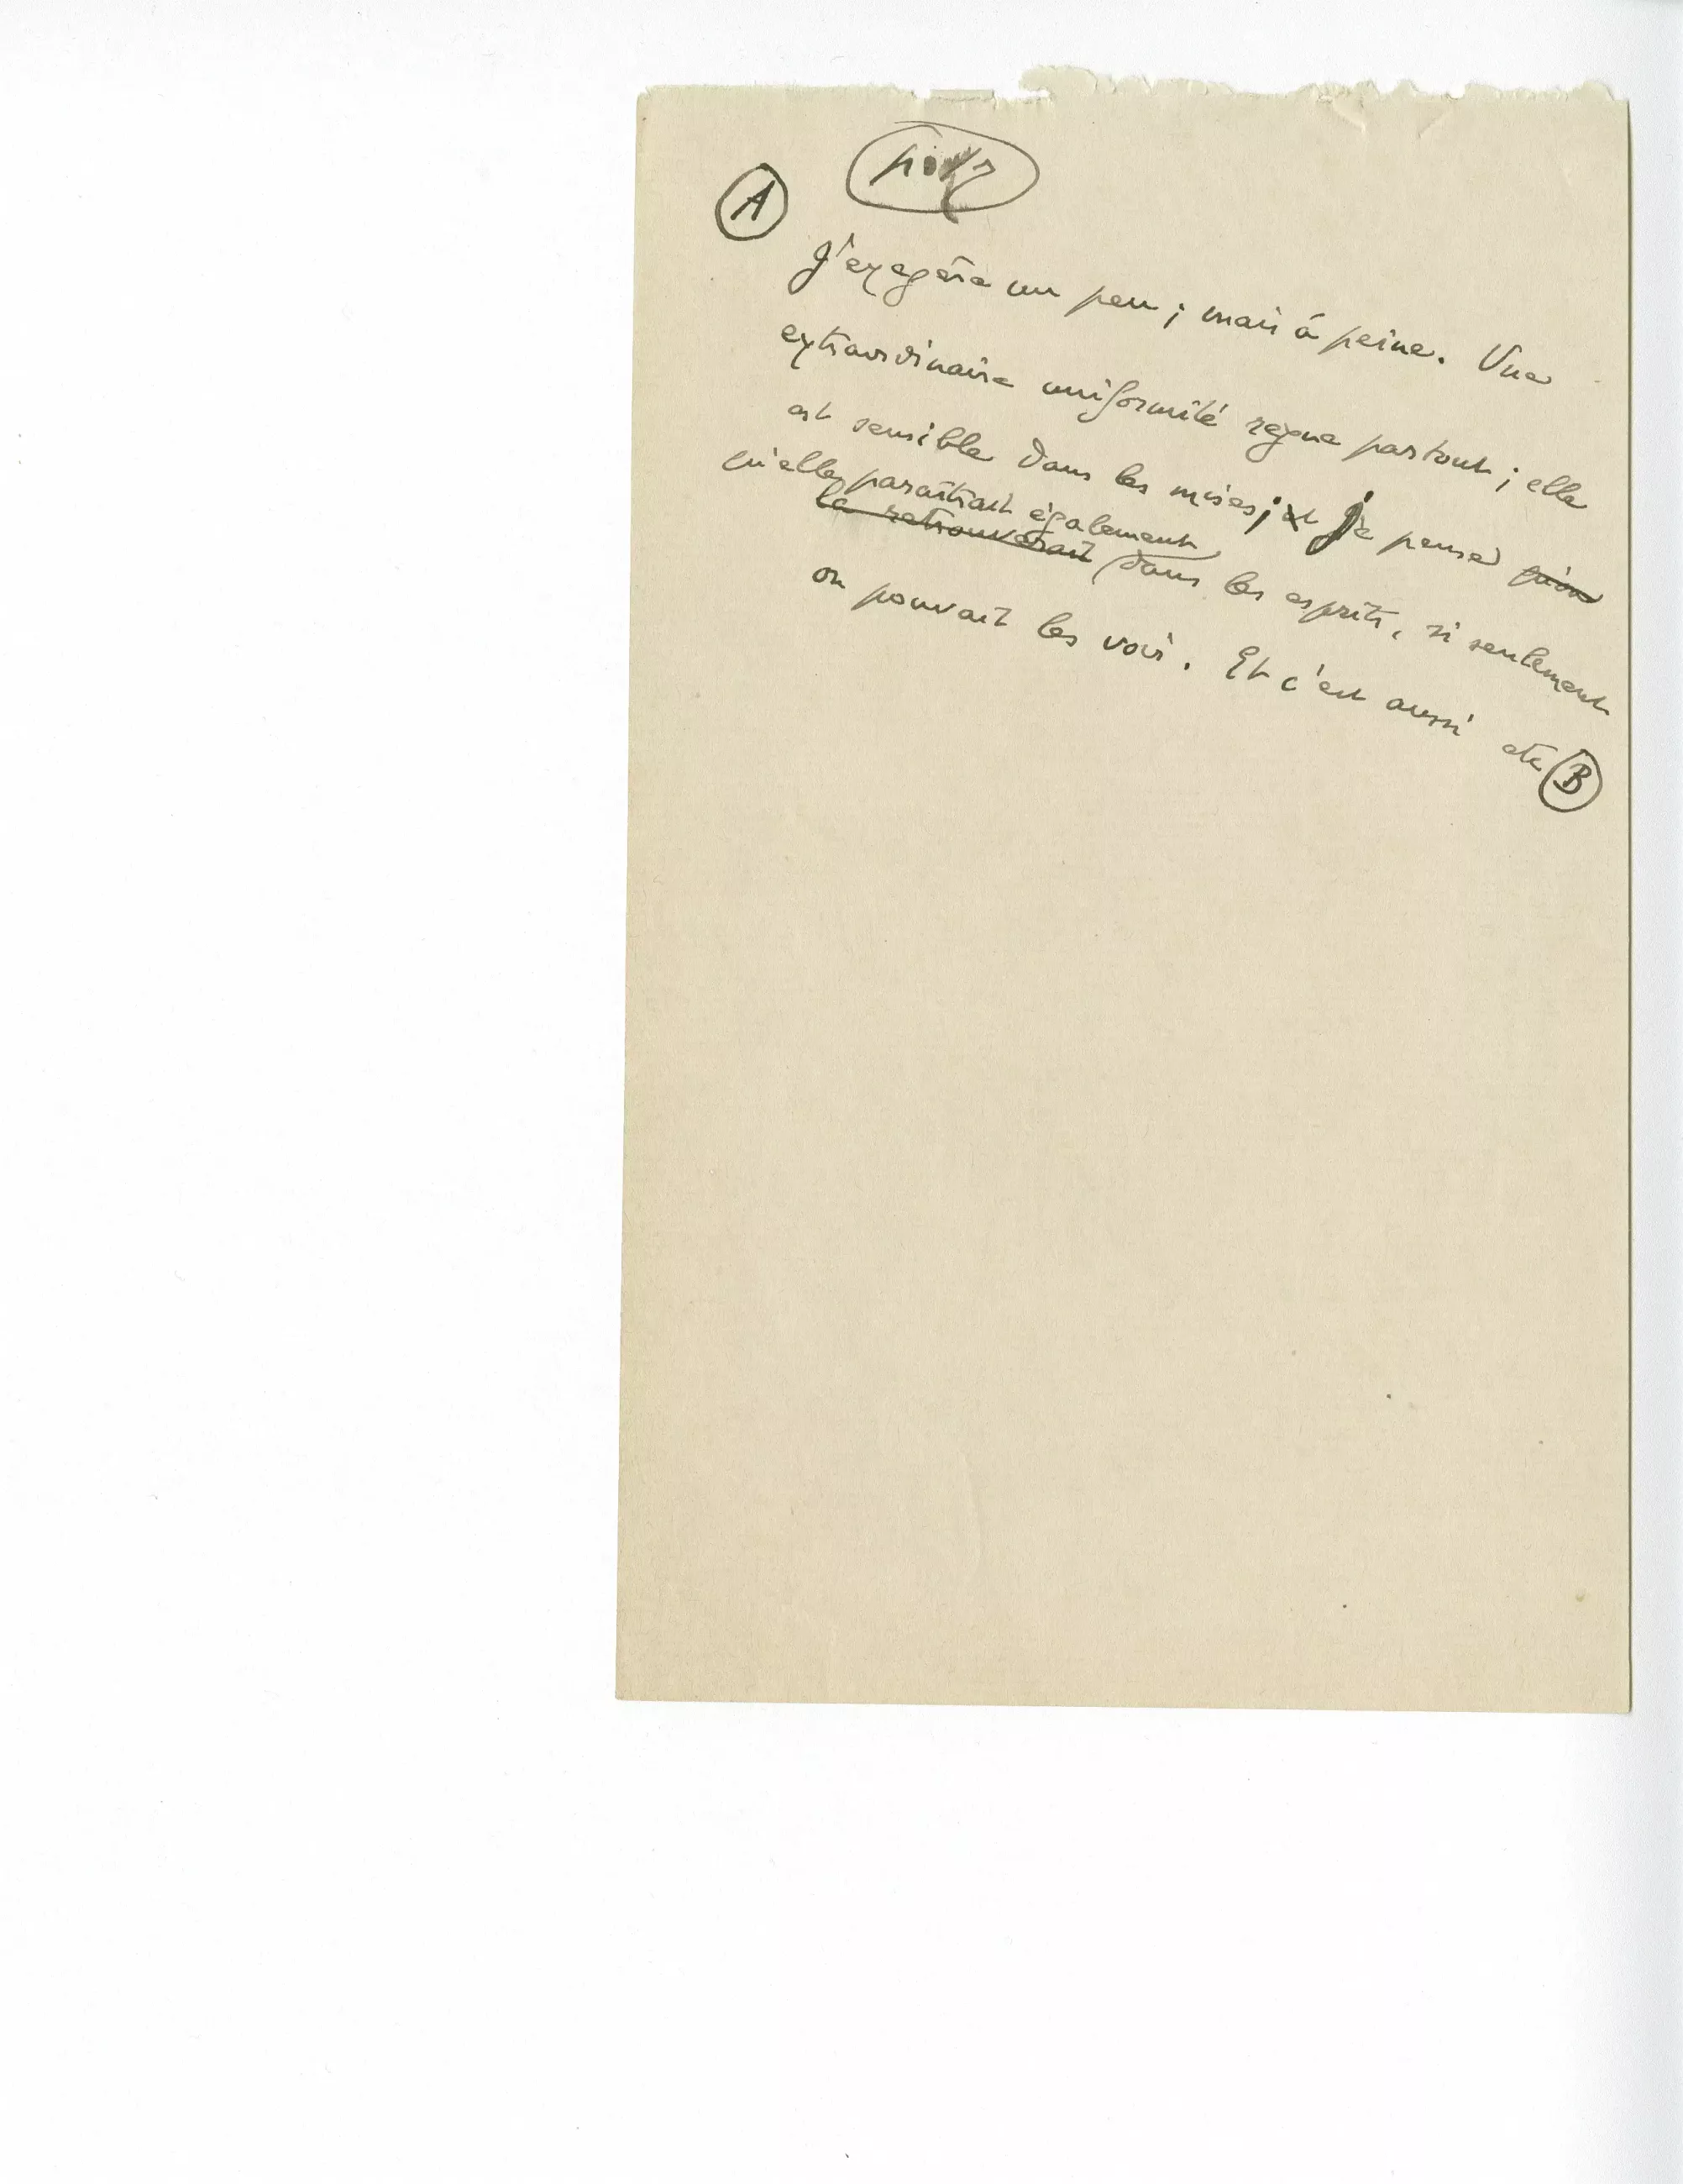 A
J'exagère un peu ; mais à peine. Une
extraordinaire uniformité règne partout ; elle
est sensible dans les mises ; et je pense qu'on
qu'elle paraîtrait également
la retrouverait dans les esprits, si seulement
on pouvait les voir. Et c'est aussi etc
B